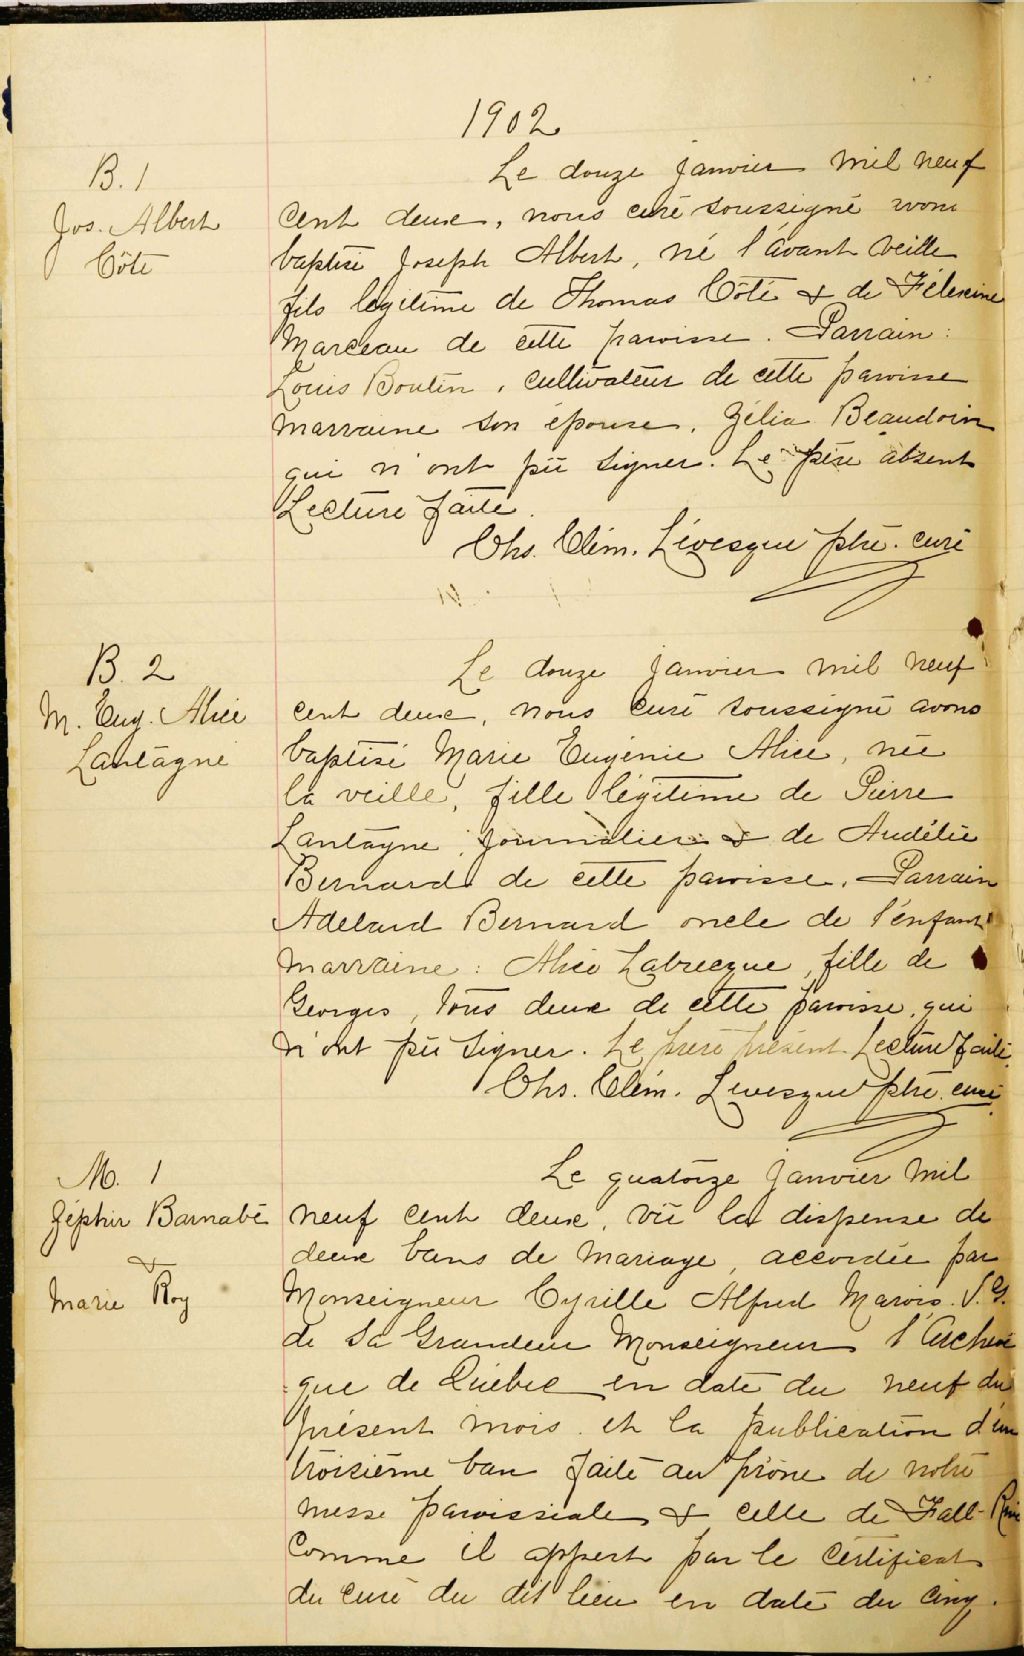 1902
B. 1
Jos. Albert
Côté
Le douze janvier mil neuf
cent deux, nous curé soussigné avons
baptisé Joseph Albert, né l'avant veille
fils légitime de Thomas Côté & de Félexine
Marceau de cette paroisse. Parrain:
Louis Boutin, cultivateur de cette paroisse
marraine son épouse, Zélia Beaudoin
qui n'ont pû signer. Le père absent
Lecture faite.
Chs. Clém. Lévesque ptre. curé
B. 2
M. Eug. Alice
Lantagne
Le douze janvier mil neuf
cent deux, nous curé soussigné avons
baptisé Marie Eugénie Alice, née
la veille, fille légitime de Pierre
Lantagne, journalier & de Audélie
Bernard de cette paroisse. Parrain
Adélard Bernard oncle de l'enfant
marraine: Alice Labrecque, fille de
Georges, tous deux de cette paroisse, qui
n'ont pû signer. Le père présent. Lecture faite.
Chs. Clém. Levesque ptre. curé
M. 1
Zéphir Barnabé
&
Marie Roy
Le quatorze janvier mil
neuf cent deux, vû la dispense de
deux bans de mariage, accordée par
Monseigneur Cyrille Alfred Marois V.G.
de Sa Grandeur Monseigneur l'Archevê
que de Québec en date du neuf du
présent mois et la publication d'un
troisième ban faite au prône de notre
messe paroissiale & celle de Fall-River
comme il appert par le certificat
du curé du dit lieu en date du cinq.